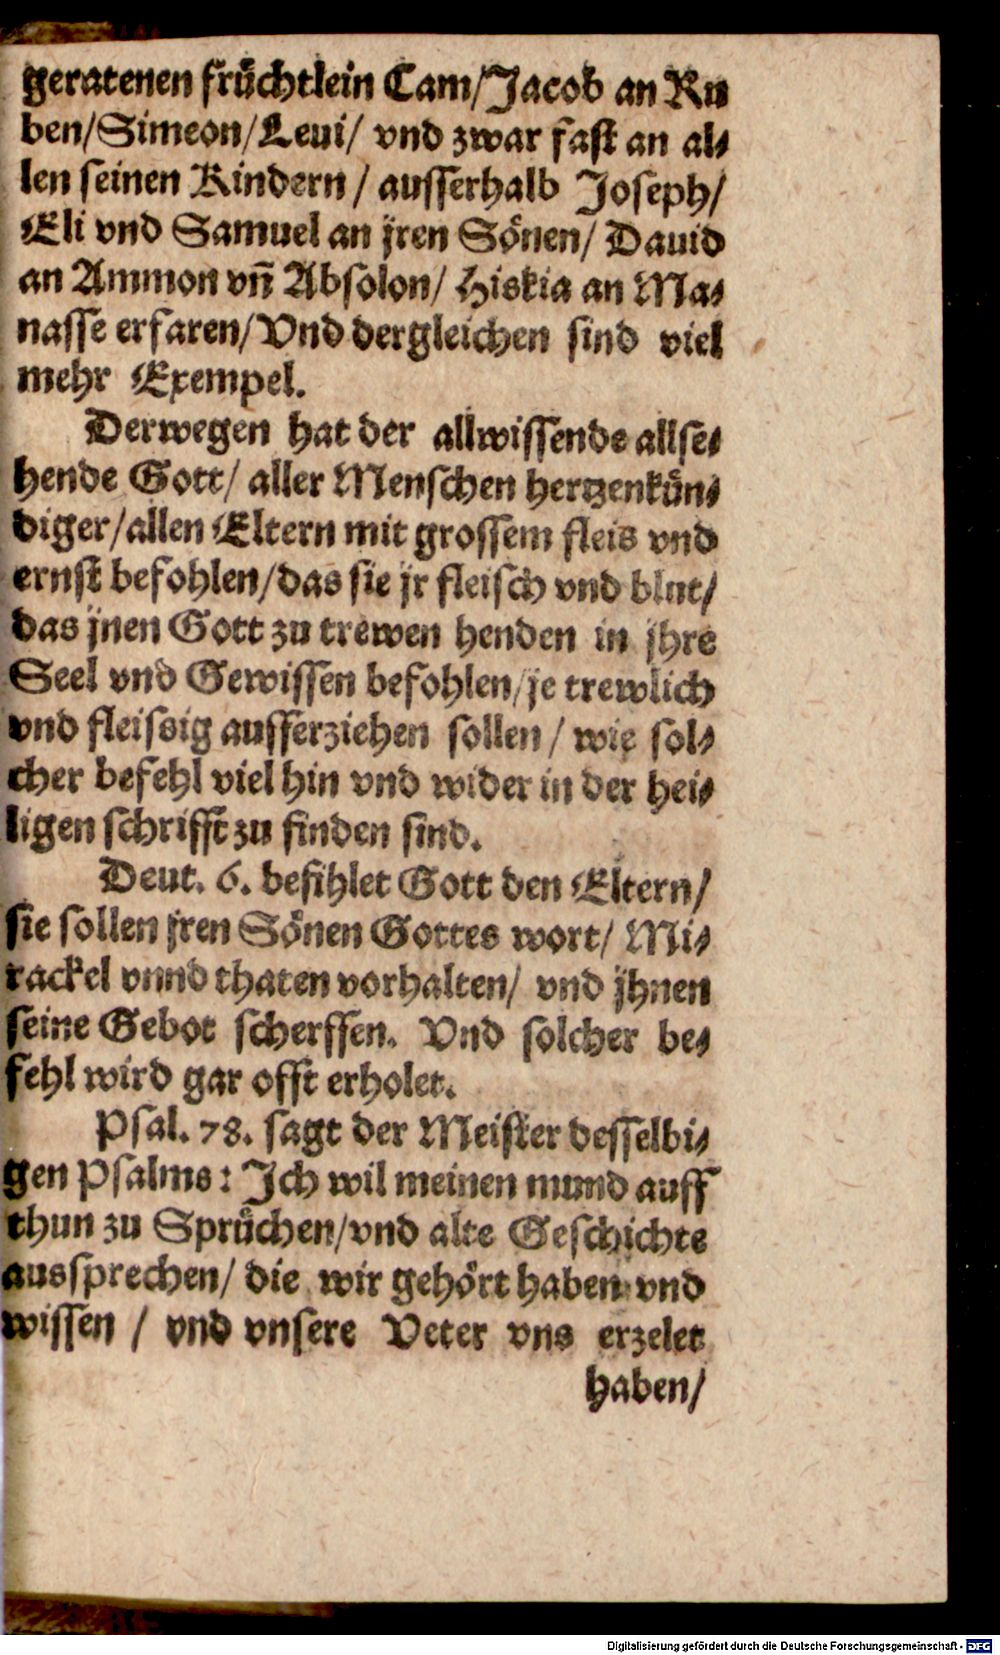 geratenen früchtlein Cam/Jacob an Ru
ben/Simeon/Leui/ vnd zwar fast an al⸗
len seinen Kindern / ausserhalb Joseph/
Eli vnd Samuel an jren Sönen/ Dauid
an Ammon vn̄ Absolon/ Hiskia an Ma⸗
nasse erfaren/Vnd dergleichen sind viel
mehr Exempel.
Derwegen hat der allwissende allse⸗
hende Gott/ aller Menschen hertzenkün⸗
diger/allen Eltern mit grossem fleis vnd
ernst befohlen/das sie jr fleisch vnd blut/
das jnen Gott zu trewen henden in jhre
Seel vnd Gewissen befohlen/je trewlich
vnd fleissig aufferziehen sollen / wie sol⸗
cher befehl viel hin vnd wider in der hei⸗
ligen schrifft zu finden sind.
Deut. 6. befihlet Gott den Eltern/
sie sollen jren Sönen Gottes wort/ Mi⸗
rackel vnnd thaten vorhalten/ vnd jhnen
seine Gebot scherffen. Vnd solcher be⸗
fehl wird gar offt erholet.
Psal. 78. sagt der Meister desselbi⸗
gen Psalms: Jch wil meinen mund auff
thun zu Sprüchen/vnd alte Geschichte
aussprechen/ die wir gehört haben vnd
wissen / vnd vnsere Veter vns erzelet
haben/
Digitalisierung gefördert durch die Deutsche Forschungsgemeinschaft - DFG